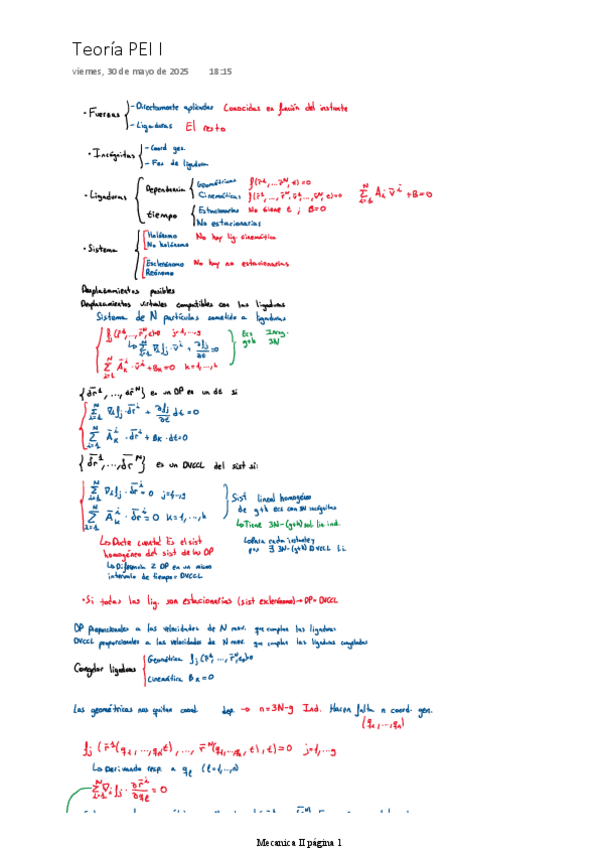 Teoría PEI I
viernes, 30 de mayo de 2025 18:15
· Fuerzas { - Directamente aplicadas Conocidas en función del instante
- Ligaduras El resto
· Incógnitas { - Coord ges.
- Fzs de ligadura
· Ligaduras { Dependencia { Geométricas f(r̄¹,...,r̄ᴺ,t)=0
Cinemáticas f(r̄¹,...,r̄ᴺ,v̄¹,...,v̄ᴺ,t)=0 Σᵢ₌₁ᴺ Āᵢ·v̄ⁱ+B=0
tiempo { Estacionarias No tiene t ; B=0
No estacionarias
· Sistema { Holónomo No hay lig. cinemática
No holónomo
Esclerónomo No hay no estacionarias
Reónomo
Desplazamientos posibles
Desplazamientos virtuales compatibles con las ligaduras
Sistema de N partículas sometido a ligaduras
fⱼ(r̄¹,...,r̄ᴺ,t)=0 j=1,...,g
↳ Σᵢ₌₁ᴺ ∇ᵢfⱼ·v̄ⁱ + ∂fⱼ/∂t=0
Σᵢ₌₁ᴺ Āₖⁱ·v̄ⁱ+Bₖ=0 k=1,...,h
Ecs Incog.
g+h 3N
{dr̄¹,...,dr̄ᴺ} es un DP en un dt si
Σᵢ₌₁ᴺ ∇ᵢfⱼ·dr̄ⁱ + ∂fⱼ/∂t dt=0
Σᵢ₌₁ᴺ Āₖⁱ·dr̄ⁱ+Bₖ·dt=0
{δr̄¹,...,δr̄ᴺ} es un DVCCL del sist si:
Σᵢ₌₁ᴺ ∇ᵢfⱼ·δr̄ⁱ=0 j=1,...,g
Σᵢ₌₁ᴺ Āₖⁱ·δr̄ⁱ=0 k=1,...,h
Sist lineal homogéneo
de g+h ecs con 3N incógnitas
↳ Tiene 3N-(g+h) sol. lin. ind.
↳ Date cuenta! Es el sist
homogéneo del sist de los DP
↳ Diferencia 2 DP en un mismo
intervalo de tiempo = DVCCL
↳ Para cada instante y
∃ 3N-(g+h) DVCCL l.i.
· Si todas las lig. son estacionarias (sist esclerónomo) → DP=DVCCL
DP proporcionales a las velocidades de N mov. que cumplan las ligaduras
DVCCL proporcionales a las velocidades de N mov. que cumplan las ligaduras congeladas
Congelar ligaduras { Geométrica fⱼ(r̄¹,...,r̄ᴺ,t₀)=0
Cinemática Bₖ=0
Las geométricas nos quitan coord dep. → n=3N-g Ind. Hacen falta n coord. gen.
(q₁,...,qₙ)
fⱼ(r̄¹(q₁,...,qₙ,t),...,r̄ᴺ(q₁,...,qₙ,t),t)=0 j=1,...,g
↳ Derivando resp. a qₗ (l=1,...,n)
Σᵢ₌₁ᴺ ∇ᵢfⱼ·∂r̄ⁱ/∂qₗ=0
Mecanica II página 1